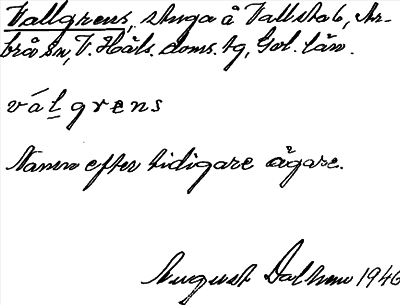 Vallgrens, stuga å Vallsta 6, Ar-
brå sn, V. Häls. doms. tg, Gvl. län.
vál grens
Namn efter tidigare ägare.
August Dalhem 1946